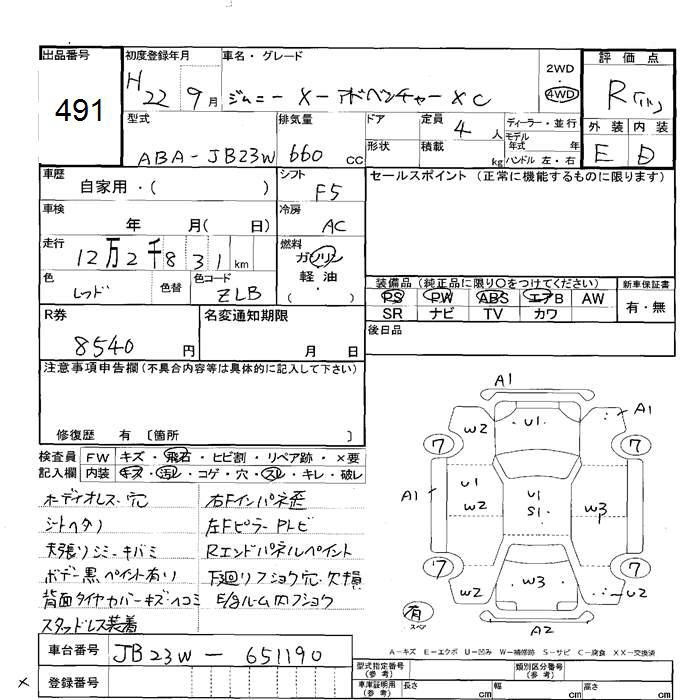 出品番号
491
初度登録年月
H22 9月
車名・グレード
ジムニー X-アドベンチャーXC
2WD
・
4WD
評価点
R
外装 内装
E D
型式
ABA-JB23W
排気量
660 cc
ドア
形状
定員
4 人
積載
kg
ディーラー・並行
モデル
年式 年
ハンドル 左・右
車歴
自家用・( )
シフト
F5
セールスポイント (正常に機能するものに限ります)
車検
年 月( 日)
冷房
AC
走行
12万2千831km
燃料
ガソリン
・
軽油
( )
色
レッド
色替
色コード
ZLB
装備品 (純正品に限り○をつけてください)
PS PW ABS エアB AW
SR ナビ TV カワ
新車保証書
有・無
R券
8540 円
名変通知期限
月 日
後日品
注意事項申告欄 (不具合内容等は具体的に記入して下さい)
修復歴 有 〔箇所 〕
検査員
記入欄
FW キズ・飛石・ヒビ割・リペア跡・×要
内装 キズ・汚レ・コゲ・穴・スレ・キレ・破レ
ボディオレス・穴
シートヘタリ
天張リシミ・キバミ
ボデー黒ペイント有リ
背面タイヤカバーキズヘコミ
スタッドレス装着
右Fインパネ歪
左FピラーPトビ
Rエンドパネルペイント
下廻リフショク穴・欠損
E/gルーム内フショク
A1
W2
U1
A1
7
7
A1
U1
W2
U1
S1
W3
7
7
W2
W3
U2
A2
有
スペア
A-キズ E-エクボ U-凹み W-補修跡 S-サビ C-腐食 XX-交換済
車台番号
JB23W-651190
登録番号
×
型式指定番号
(参考)
類別区分番号
(参考)
車庫証明用
(参考)
長さ cm
幅 cm
高さ cm